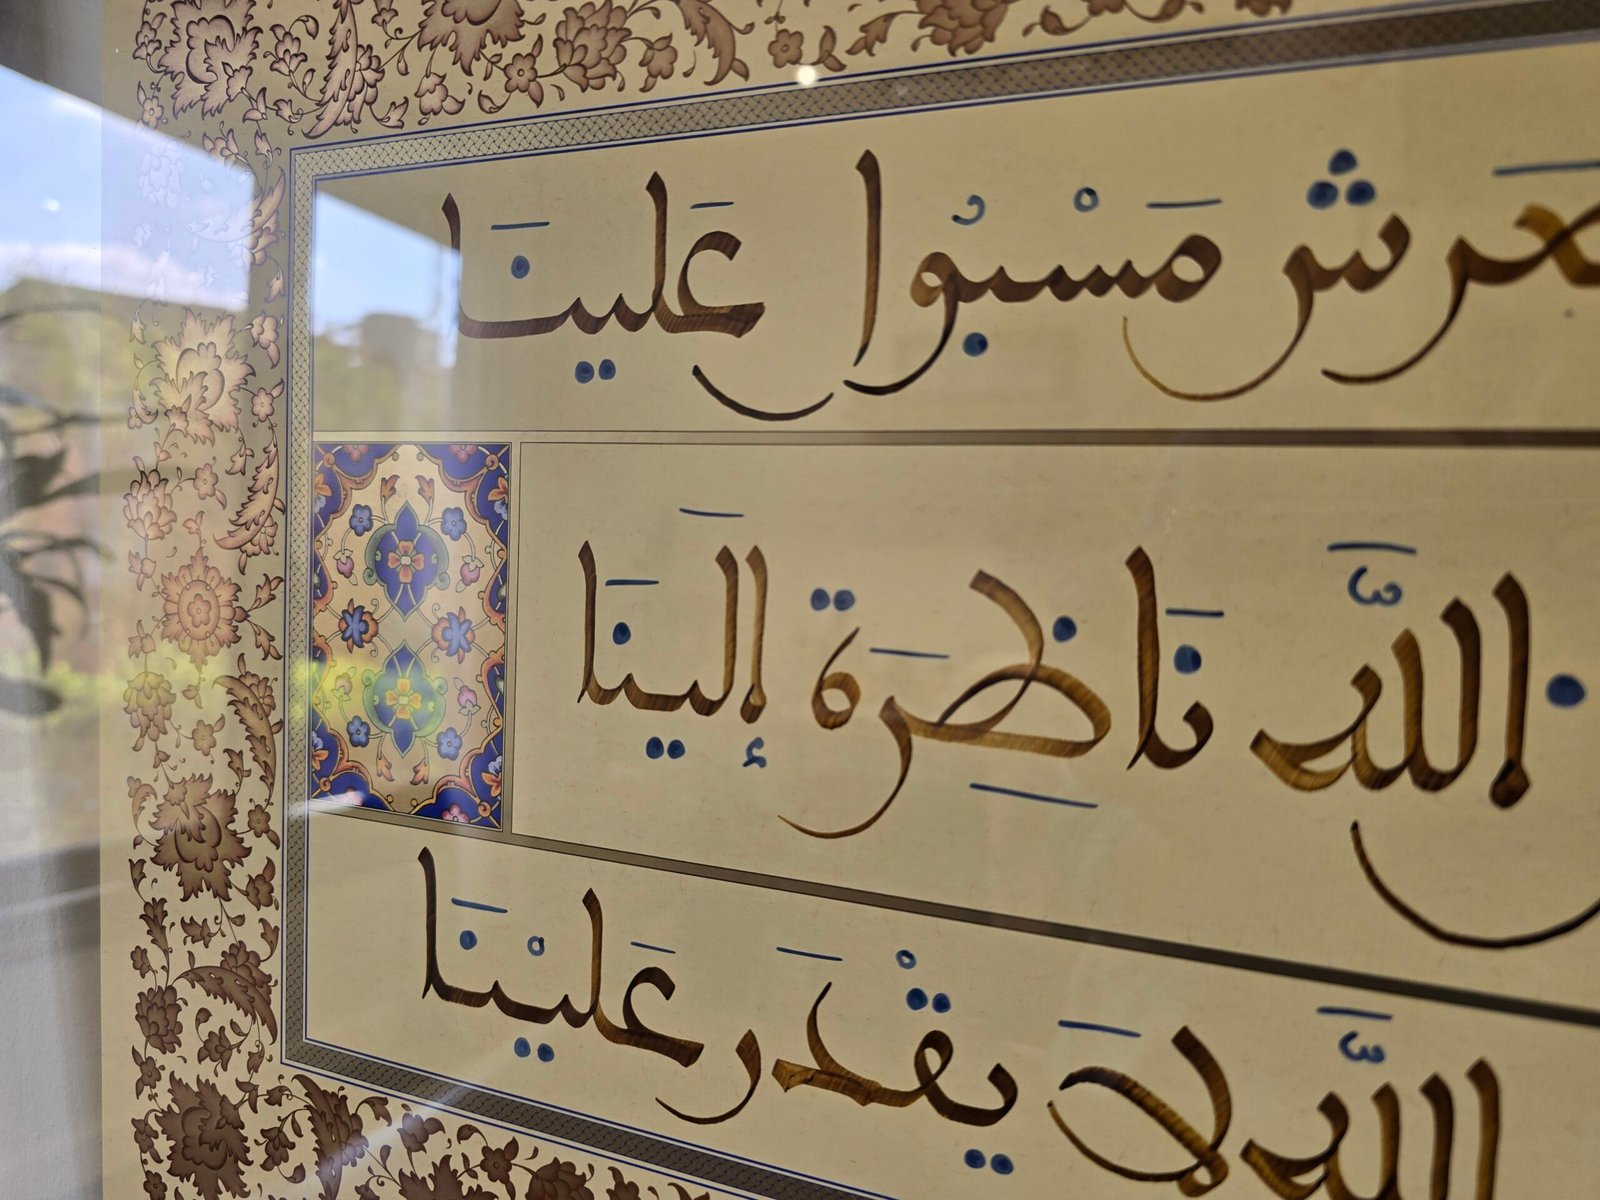 عَرش مَسْبُول عَلينَا
اللَّه نَاظِرَة إلَينَا
اللَّه لَا يقْدَر عَليْنَا